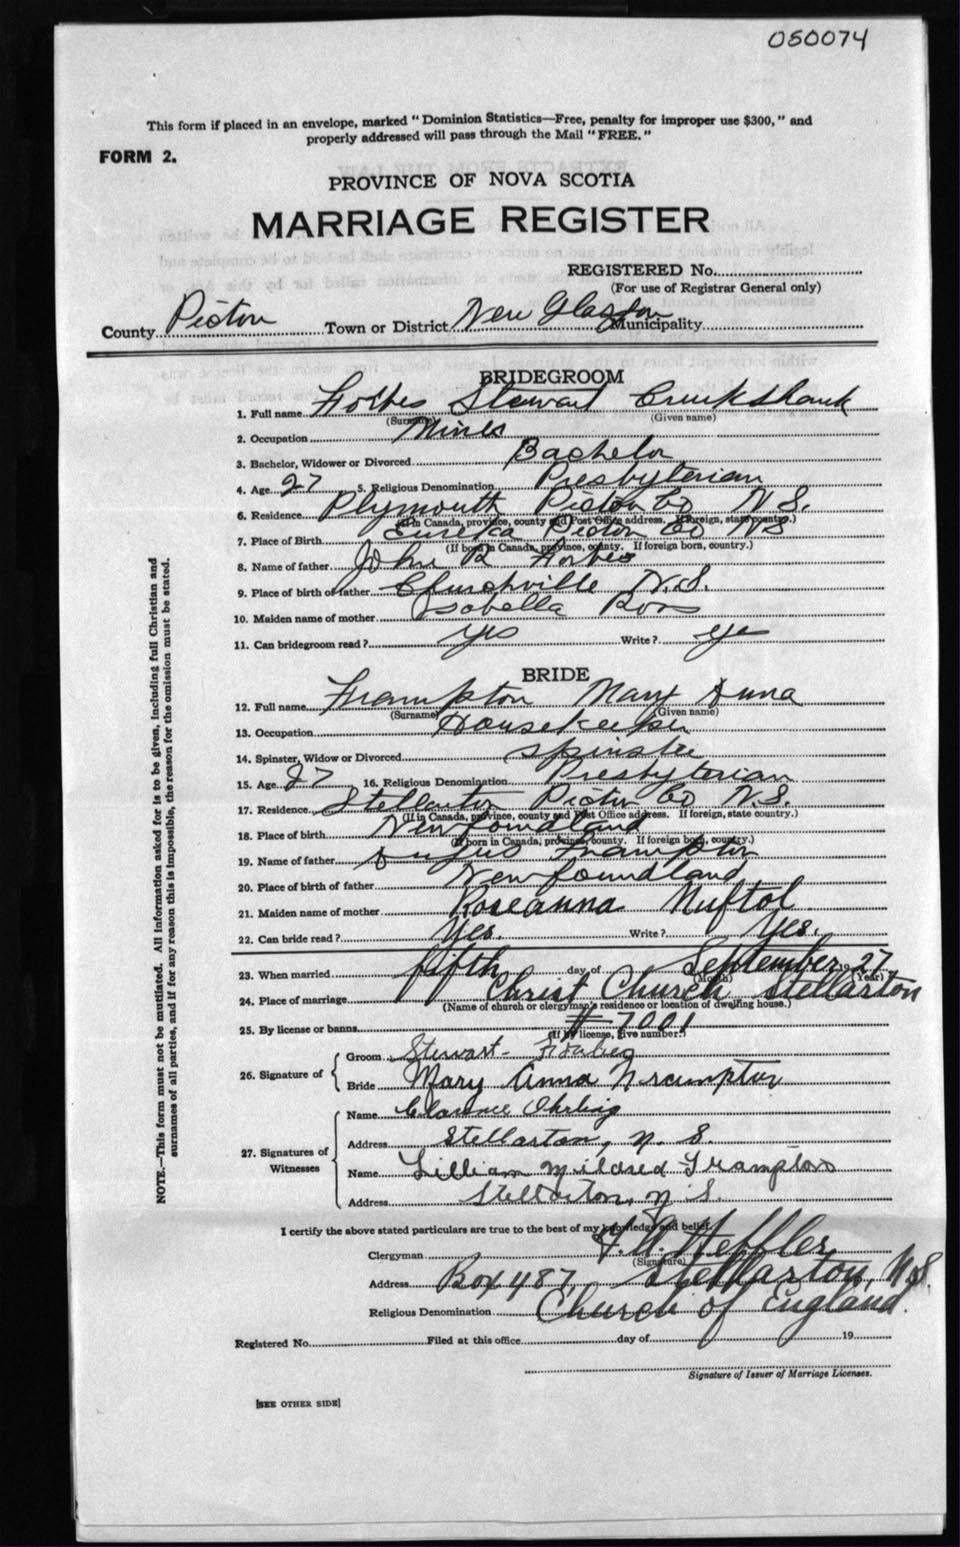 050074
This form if placed in an envelope, marked "Dominion Statistics—Free, penalty for improper use $300," and
properly addressed will pass through the Mail "FREE."
FORM 2.
PROVINCE OF NOVA SCOTIA
MARRIAGE REGISTER
REGISTERED No.
(For use of Registrar General only)
County Pictou Town or District New Glasgow Municipality
BRIDEGROOM
1. Full name Forbes Stewart Cruikshank
(Surname) (Given name)
2. Occupation Miner
3. Bachelor, Widower or Divorced Bachelor
4. Age 27 5. Religious Denomination Presbyterian
6. Residence Plymouth Pictou Co N.S.
(If in Canada, province, county and Post Office address. If foreign, state country.)
7. Place of Birth Eureka Pictou Co NS
(If born in Canada, province, county. If foreign born, country.)
8. Name of father John R Forbes
9. Place of birth of father Churchville N.S.
10. Maiden name of mother Isabella Ross
11. Can bridegroom read? yes Write? yes
BRIDE
12. Full name Frampton Mary Anna
(Surname) (Given name)
13. Occupation Housekeeper
14. Spinster, Widow or Divorced Spinster
15. Age 27 16. Religious Denomination Presbyterian
17. Residence Stellarton Pictou Co N.S.
(If in Canada, province, county and Post Office address. If foreign, state country.)
18. Place of birth Newfoundland
(If born in Canada, province, county. If foreign born, country.)
19. Name of father Frampton
20. Place of birth of father Newfoundland
21. Maiden name of mother Roseanna Nuftol
22. Can bride read? Yes. Write? Yes.
23. When married fifth day of September 1927
(Month) (Year)
24. Place of marriage Christ Church Stellarton
(Name of church or clergyman's residence or location of dwelling house.)
25. By license or banns # 7001
(If by license, give number.)
26. Signature of
Groom Stewart Forbes
Bride Mary Anna Frampton
27. Signatures of Witnesses
Name Clarence
Address Stellarton, N. S.
Name Lillian Mildred Frampton
Address Stellarton, N. S.
I certify the above stated particulars are true to the best of my knowledge and belief.
Clergyman Heffler
(Signature)
Address Box 487, Stellarton, N.S.
Religious Denomination Church of England.
Registered No. Filed at this office day of 19
Signature of Issuer of Marriage Licenses.
[SEE OTHER SIDE]
NOTE.—This form must not be mutilated. All information asked for is to be given, including full Christian and
surnames of all parties, and if for any reason this is impossible, the reason for the omission must be stated.